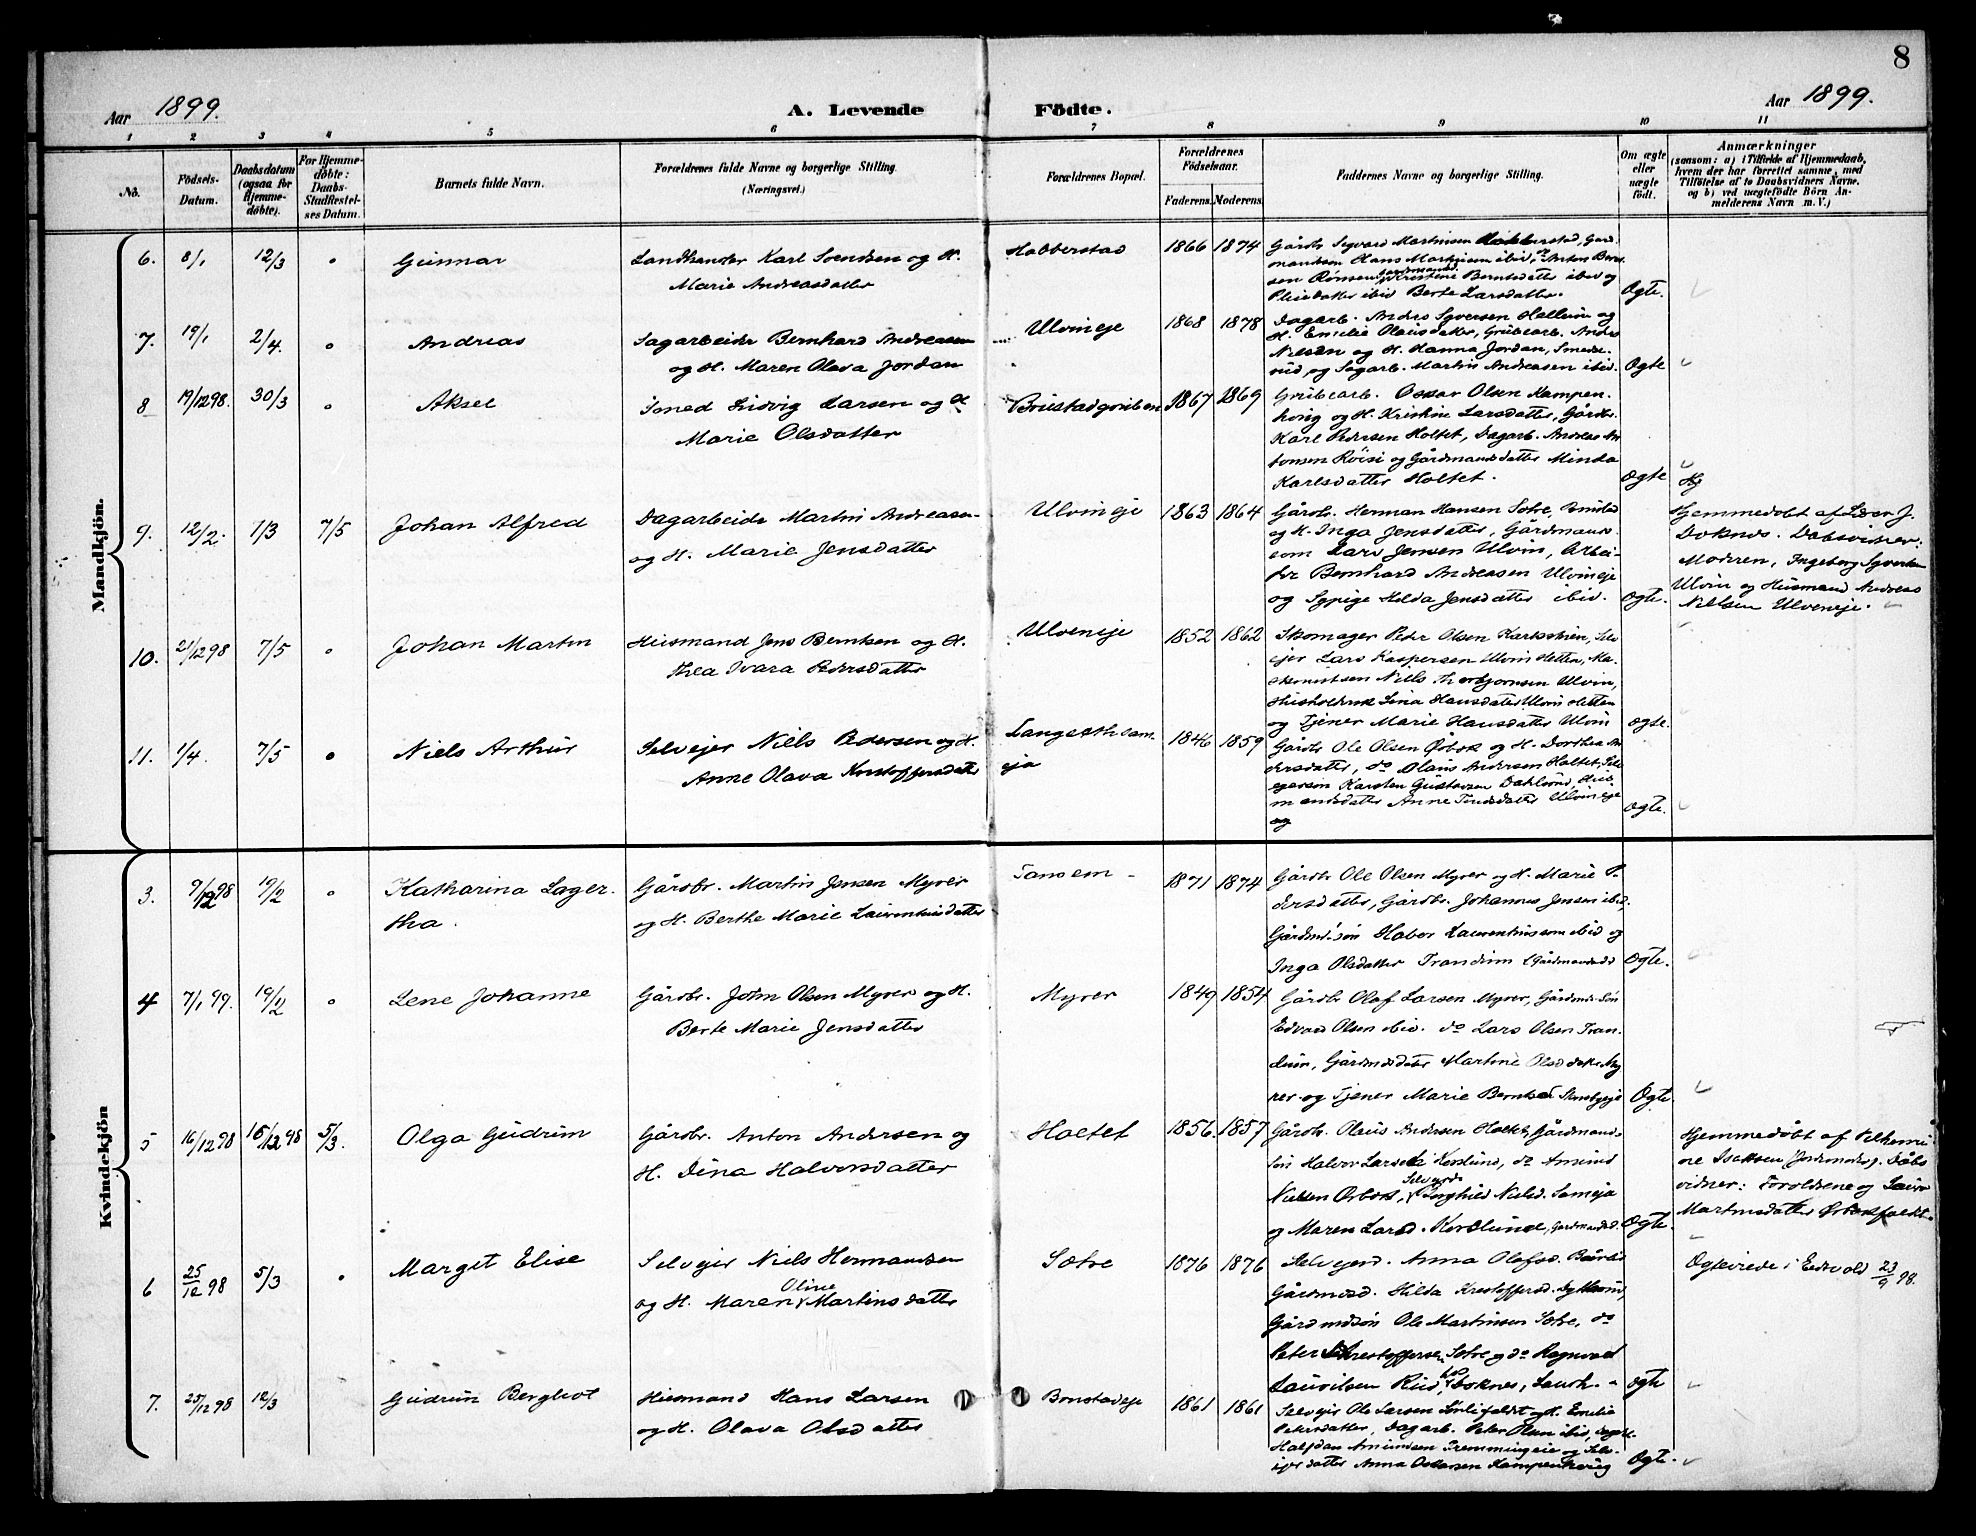 8
Aar 1899.
A. Levende Födte.
Aar 1899.
1 2 3 4 5 6 7 8 9 10 11
No.
Födsels-Datum.
Daabsdatum (ogsaa for Hjemme-döbte).
For Hjemme-döbte: Daabs-Stadfæstel-ses Datum.
Barnets fulde Navn.
Forældrenes fulde Navne og borgerlige Stilling.
(Næringsvei.)
Forældrenes Bopæl.
Forældrenes Födselsaar.
Faderens. Moderens.
Faddernes Navne og borgerlige Stilling.
Om ægte eller uægte födt.
Anmærkninger
(saasom: a) i Tilfælde af Hjemmedaab, hvem der har forrettet samme, med Tilföielse af to Daabsvidners Navne, og b) ved uægtefödte Börn An-melderens Navn m. V.)
Mandkjön.
6. 8/1 12/3 " Gunnar
Landhandler Karl Svendsen og H.
Marie Andreasdatter
Habberstad 1866 1874
Gårdbr. Sigvard Martinsen Habberstad, Gård-
mandssøn Hans Martinsen ibid, Anton Bernt-
sen Rønsen, Kristine Berntsdatter ibid og
Berte Larsdatter.
Ægte.
7. 19/1 2/4. " Andreas
Sagarbeider Bernhard Andreasen
og H. Maren Olava Jordan
Ulvineje 1868 1878
Dagarb. Anders Syversen Hellum og
H. Emilie Olausdatter, Grubearb. Anders
Nielsen og H. Hanna Jordan, Smeds-
rud, og Sagarb. Martin Andreasen ibid.
Ægte
8 19/12 98. 30/3 " Aksel
Smed Ludvig Larsen og H
Marie Olsdatter
1867 1869
Grubearb. Oskar Olsen Kampen-
haug og H. Kristine Larsdatter, Gårdbr.
Karl Pedersen Holtet, Dagarb. Andreas An-
tonsen Röisi og Gårdmandsdatter Minda
Karlsdatter Holtet.
Ægte
9. 12/2. 1/3 7/5 Johan Alfred
Dagarbeider Martin Andreasen
og H. Marie Jensdatter
Ulvineje 1863 1864
Gårdbr. Herman Hansen Sætre,
og H. Inga Jensdatter, Gårdmands-
søn Lars Jensen Ulvin, Arbei-
der Bernhard Andreasen Ulvineje
og Sypige Hilda Jensdatter ibid.
Ægte.
Hjemmedøbt af Lærer J.
Doknes. Dåbsvidner:
Moderen, Ingeborg Syversen
Ulvin og Husmand Andreas
Nielsen Ulveneje.
10. 21/12 98 7/5 " Johan Martin
Husmand Jens Berntsen og H.
Thea Ivara Pedersdatter
Ulveneje 1852 1862
Skomager Peder Olsen Karlsstien, Selv-
ejer Lars Kaspersen Ulvinsletten, Ma-
skinistsøn Niels Thorbjørnsen Ulvin,
Husholderske Lina Hansdatter Ulvinsletten
og Tjener Marie Hansdatter Ulvin
Ægte.
11. 1/4. 7/5 " Niels Arthur
Selvejer Niels Pedersen og H.
Anne Olava Kristoffersdatter
1846 1859
Gårdbr. Ole Olsen Øbok og H. Dorthea An-
dersdatter, do Olaus Andersen Holtet, Selv-
ejersøn Karsten Gustavsen Dahlsrud, Hus-
mandsdatter Anne Jensdatter Ulvineje
og
Ægte.
Kvindekjön
3. 9/12 98 19/2 " Katharina Lager-
tha.
Gårdbr. Martin Jensen Myrer
og H. Berthe Marie Laurentinsdatter
Tansem 1871 1874
Gårdbr. Ole Olsen Myrer og H. Marie P-
dersdatter, Gårdbr. Johannes Jensen ibid,
Gårdmdssøn Halvor Laurentinssøn ibid og
Inga Olsdatter Trandum (Gårdmandsd)
Ægte.
4 7/1 99. 19/2 " Lene Johanne
Gårdbr. John Olsen Myrer og H.
Berte Marie Jensdatter
Myrer 1849 1854
Gårdbr Olaf Larsen Myrer, Gårdmds Søn
Edvard Olsen ibid. do Lars Olsen Tran-
dum, Gårdmdsdatter Martine Olsdatter My-
rer og Tjener Marie Berntsd
Ægte
5 16/12 98 16/12 98 5/3. Olga Gudrun
Gårdbr. Anton Andersen og
H. Dina Halvorsdatter
Holtet 1856. 1857
Gårdbr. Olaus Andersen Holtet, Gårdmands-
søn Halvor Larsen Korslund, do Amund
Nielsen Ørbæk, Selvejerds Inghild Nielsd. Sameja
og Maren Larsd. Korslund, Gårdmandsd.
Ægte.
Hjemmedøbt af Vilhelmi-
ne Isaksen (Jordmoder). Dåbs-
vidner: Forældrene og Laura
Martinsdatter
6 25/12 98 5/3 " Margit Elise
Selvejer Niels Hermandsen
og H. Maren Oline Martinsdatter
Sætre 1876 1876
Selvejerd. Anna Olafsd.
Gårdmdsd. Hilda Kristoffersd.
Gårdmdssøn Ole Martinsen Sætre, do
Peter Kristoffersen Sætre og do Ragnvald
Laurilsen Rud,
Ægte
Ægteviede i Eidsvold 23/9 98.
7. 25/12 98 12/3 Gudrun Bergliot
Husmand Hans Larsen
og H. Olava Olsdatter
1861 1861
Selvejer Ole Larsen og H. Emilie
Petersdatter, Dagarb. Peter Olsen ibid,
Halfdan Amundsen og Selv-
ejerdatter Anna Oskarsen Kampenhaug
Ægte.